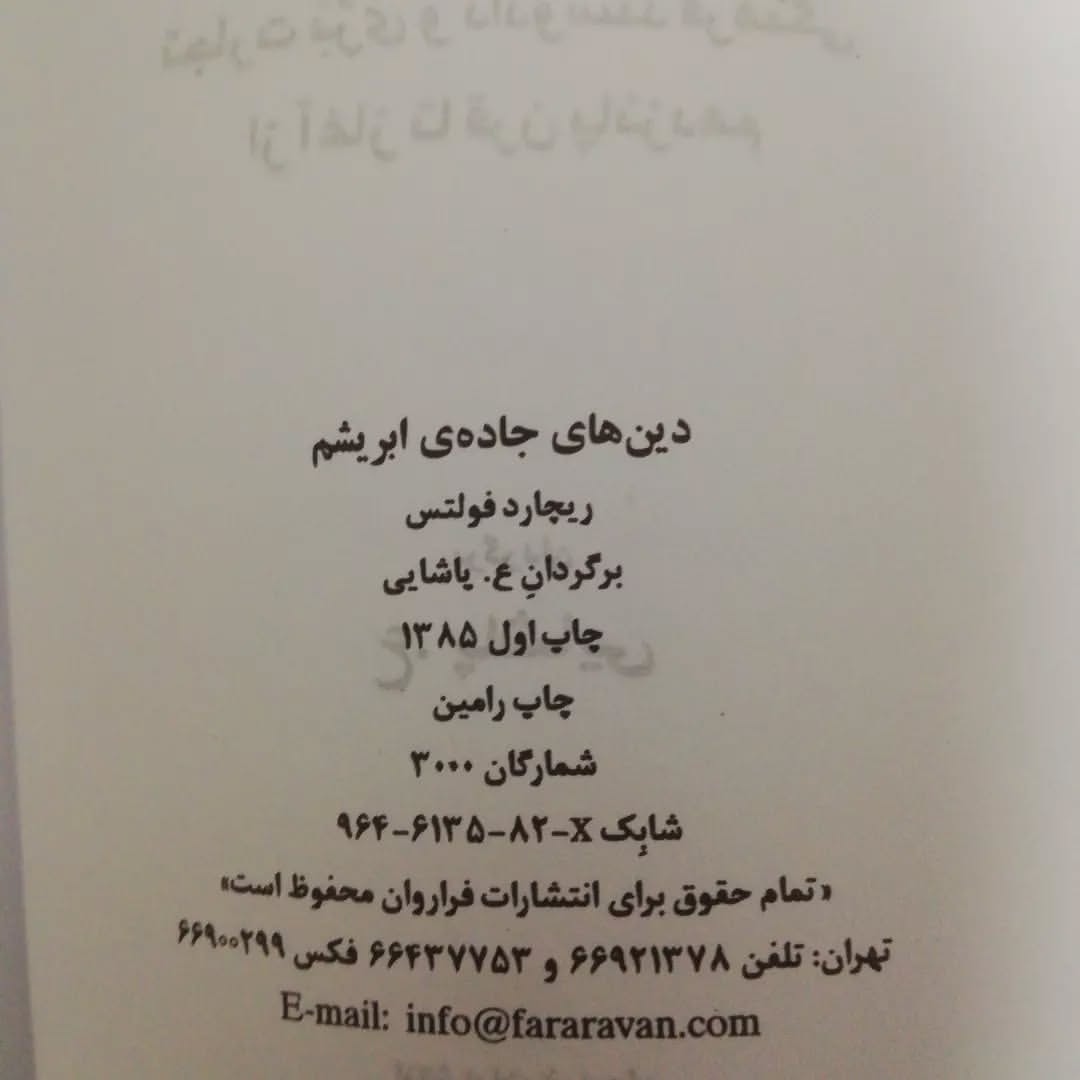 دین‌های جاده‌ی ابریشم
ریچارد فولتس
برگردانِ ع. پاشایی
چاپ اول ۱۳۸۵
چاپ رامین
شمارگان ۳۰۰۰
شابِک X-۸۲-۶۱۳۵-۹۶۴
«تمام حقوق برای انتشارات فراروان محفوظ است»
تهران: تلفن ۶۶۹۲۱۳۷۸ و ۶۶۴۳۷۷۵۳ فکس ۶۶۹۰۰۲۹۹
E-mail: info@fararavan.com